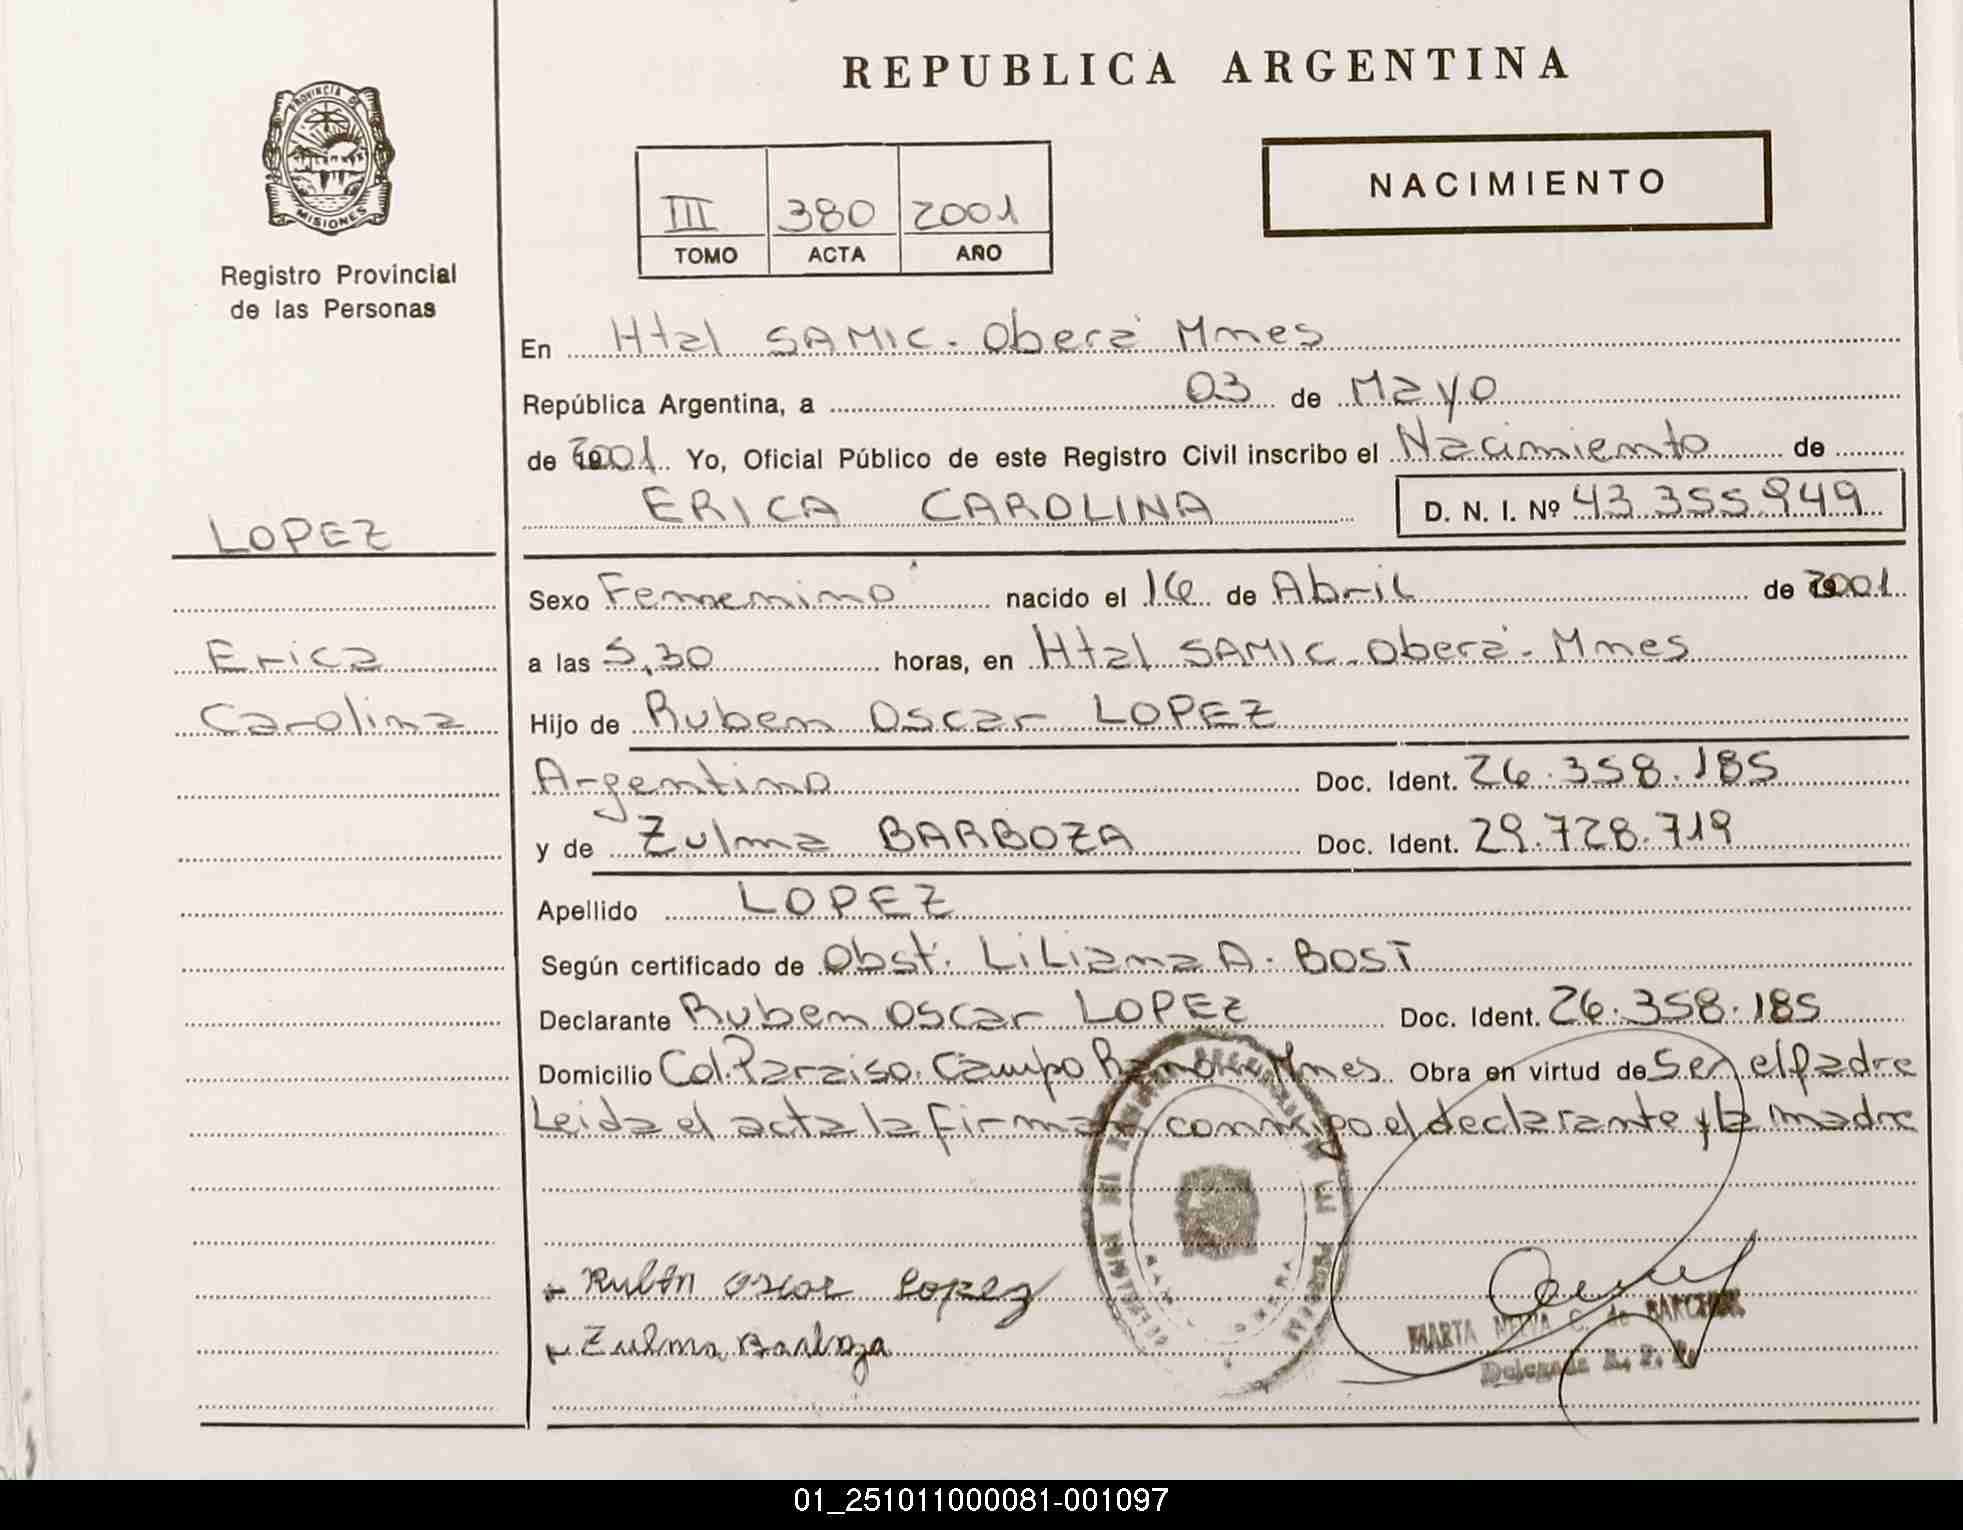 REPUBLICA ARGENTINA
PROVINCIA DE
MISIONES
Registro Provincial
de las Personas
III 380 2001
TOMO ACTA AÑO
NACIMIENTO
En Htal SAMIC. Oberá Mnes
República Argentina, a 03 de Mayo
de 2001 Yo, Oficial Público de este Registro Civil inscribo el Nacimiento de
ERICA CAROLINA D. N. I. Nº 43.355.949
LOPEZ
Erica
Carolina
Sexo Femenino nacido el 16 de Abril de 2001
a las 5,30 horas, en Htal SAMIC. Oberá. Mnes
Hijo de Ruben Oscar LOPEZ
Argentino Doc. Ident. 26.358.185
y de Zulma BARBOZA Doc. Ident. 29.728.719
Apellido LOPEZ
Según certificado de Obst. Liliana A. BOST
Declarante Ruben Oscar LOPEZ Doc. Ident. 26.358.185
Domicilio Col. Paraiso. Campo Ramon Mnes Obra en virtud de Ser el padre
Leida el acta la firman conmigo el declarante y la madre
Ruben Oscar Lopez
Zulma Barboza
MARTA C. de
Delegada R. P. P.
01_251011000081-001097